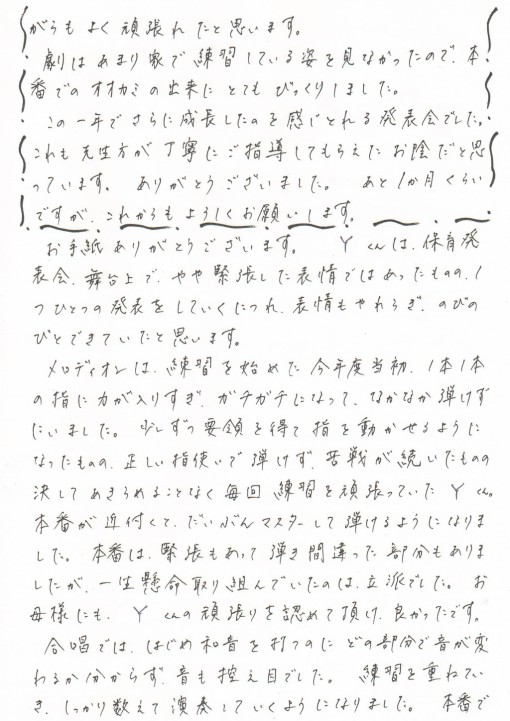 がらもよく頑張れたと思います。
劇はあまり家で練習している姿を見なかったので、本
番でのオオカミの出来にとてもびっくりしました。
この一年でさらに成長したのを感じとれる発表会でした。
これも先生方が丁寧にご指導してもらえたお陰だと思
っています。ありがとうございました。あと1か月くらい
ですが、これからもよろしくお願いします。
お手紙ありがとうございます。Yくんは、保育発
表会、舞台上で、やや緊張した表情ではあったものの、1
つひとつの発表をしていくにつれ、表情もやわらぎ、のびの
びとできていたと思います。
メロディオンは、練習を始めた今年度当初、1本1本
の指に力が入りすぎ、ガチガチになって、なかなか弾けず
にいました。少しずつ要領を得て指を動かせるように
なったものの、正しい指使いで弾けず、苦戦が続いたものの
決してあきらめることなく毎回練習を頑張っていたYくん。
本番が近付くて、だいぶんマスターして弾けるようになりま
した。本番は、緊張もあって弾き間違った部分もありま
したが、一生懸命取り組んでいたのは、立派でした。お
母様にも、Yくんの頑張りを認めて頂け、良かったです。
合唱では、はじめ和音を打つのにどの部分で音が変
わるか分からず、音も控え目でした。練習を重ねてい
き、しっかり数えて演奏していくようになりました。本番で